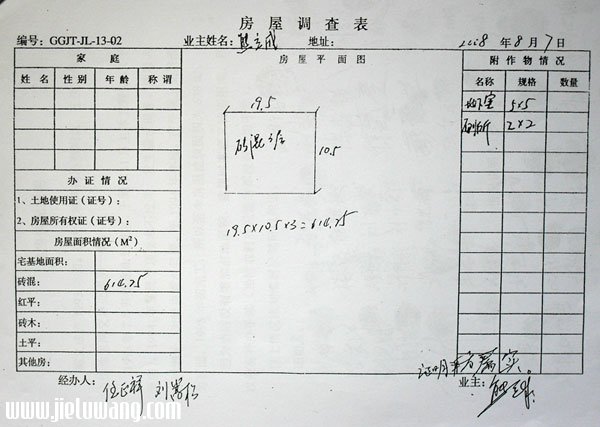 房屋调查表
编号：GGJT-JL-13-02 业主姓名： 地址： 2008 年 8 月 7 日
家庭 房屋平面图 附作物情况
姓名 性别 年龄 称谓 名称 规格 数量
地下室 5×5
19.5
厕所 2×2
砖混3层
10.5
办证情况
1、土地使用证（证号）：
2、房屋所有权证（证号）：
19.5×10.5×3=614.25
房屋面积情况（M²）
宅基地面积：
砖混： 614.25
红平：
砖木：
土平：
其他房：
经办人：
业主：
www.jieluwang.com